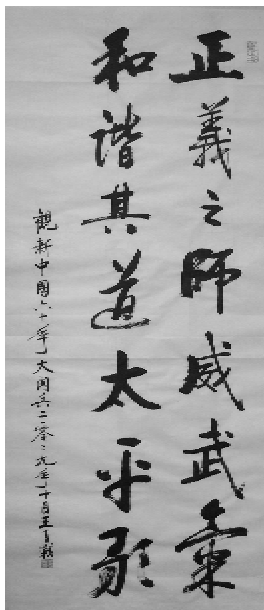 正義之師威武氣
和諧其道太平歌
觀新中國六十年大閱兵二零零九年十月王